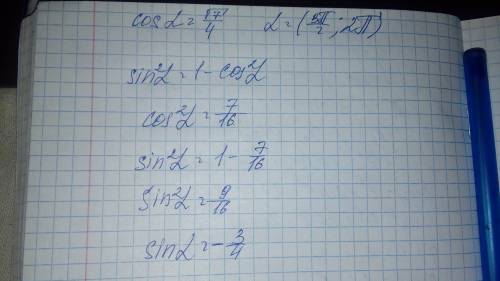 cos α = √7/4   α = (3π/2; 2π)
sin²α = 1 - cos²α
cos²α = 7/16
sin²α = 1 - 7/16
sin²α = 9/16
sin α = - 3/4